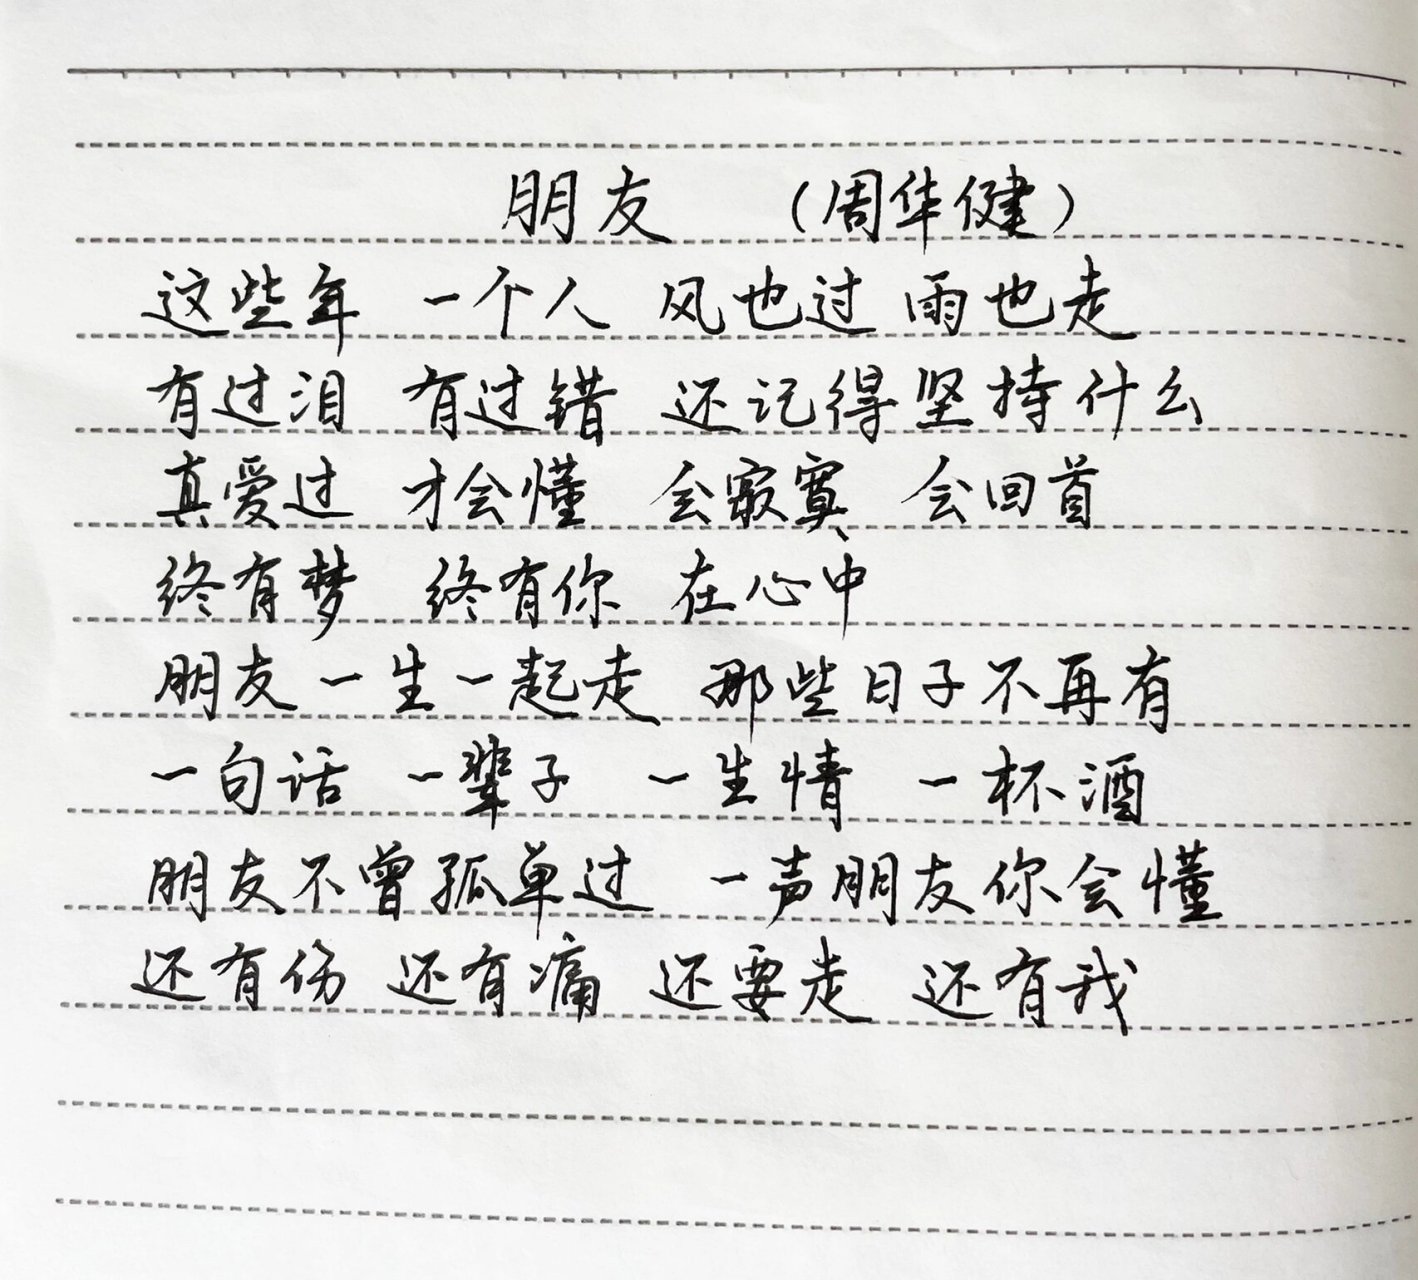 朋友 （周华健）
这些年 一个人 风也过 雨也走
有过泪 有过错 还记得坚持什么
真爱过 才会懂 会寂寞 会回首
终有梦 终有你 在心中
朋友一生一起走 那些日子不再有
一句话 一辈子 一生情 一杯酒
朋友不曾孤单过 一声朋友你会懂
还有伤 还有痛 还要走 还有我